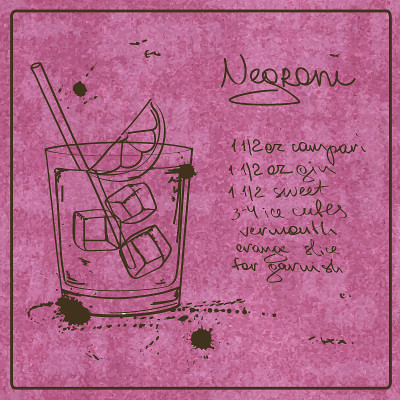 Negroni
1 1/2 oz campari
1 1/2 oz gin
1 1/2 sweet
3-4 ice cubes
vermouth
orange slice
for garnish